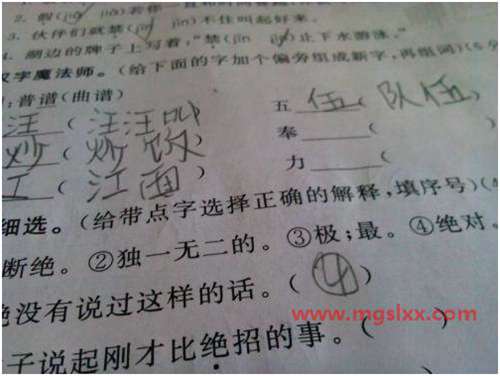 2. 假(jiǎ jià)若你一直和时间
3. 伙伴们就禁(jīn jìn)不住叫起好来。
4. 湖边的牌子上写着,“禁(jīn jìn)止下水游泳。”
汉字魔法师。(给下面的字加个偏旁组成新字,再组词)(6分
:普谱(曲谱) 五 伍 ( 队伍 )
汪 ( 汪汪叫 奉 (
炒 ( 炒饭 力 (
工 ( 江面 )
细选。(给带点字选择正确的解释,填序号)(4
断绝。②独一无二的。③极;最。④绝对。
绝没有说过这样的话。( ④ )
www.mgslxx.com
子说起刚才比绝招的事。( )